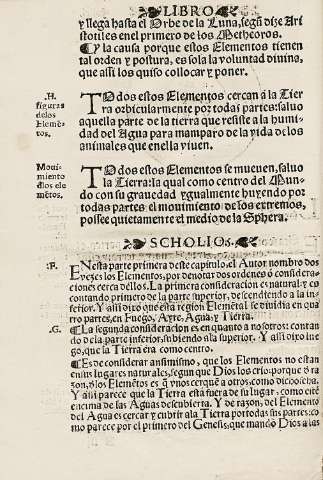 LIBRO
y llega hasta el Orbe de la Luna, segũ dize Ari
stotiles en el primero de los Metheoros.
¶ Y la causa porque estos Elementos tienen
tal orden y postura, es sola la voluntad divina,
que assi los quiso collocar y poner.
.H.
figuras
delos
Elemẽ-
tos.
TOdos estos Elementos cercan à la Tier
ra orbicularmente por todas partes: salvo
aquella parte de la tierra que resiste a la humi
dad del Agua para mamparo de la vida de los
animales que en ella viven.
Movi-
miento
d̃los ele
mẽtos.
TOdos estos Elementos se mueven, salvo
la Tierra: la qual como centro del Mun-
do con su gravedad ygualmente huyendo por
todas partes el movimiento de los extremos,
possee quietamente el medio de la Sphera.
SCHOLIOS.
.F.
ENesta parte primera deste capitulo, el Autor nombro dos
vezes los Elementos, por denotar dos ordenes ó considera-
ciones cerca dellos. La primera consideracion es natural, y co
contando primero de la parte superior, descendiendo a la in-
ferior. Y assi dixo que esta region Elemental se dividia en qua
tro partes, en Fuego, Ayre, Agua, y Tierra.
.G.
¶ La segunda consideracion es en quanto a nosotros: contan-
do de la parte inferior, subiendo a la superior. Y assi dixo lue
go, que la Tierra era como centro.
¶ Es de considerar ansimismo, que los Elementos no estan
en sus lugares naturales, segun que Dios los crio: porque ó ra
zon, ó los Elemẽtos es q̃ vnos cerquẽ a otros, como dicho se ha.
Y assi parece que la Tierra esta fuera de su lugar, como esté
encima de las Aguas descubierta. Y de razon, del Elemento
del Agua es cercar y cubrir a la Tierra por todas sus partes: co-
mo parece por el primero del Genesis, que mandò Dios a las